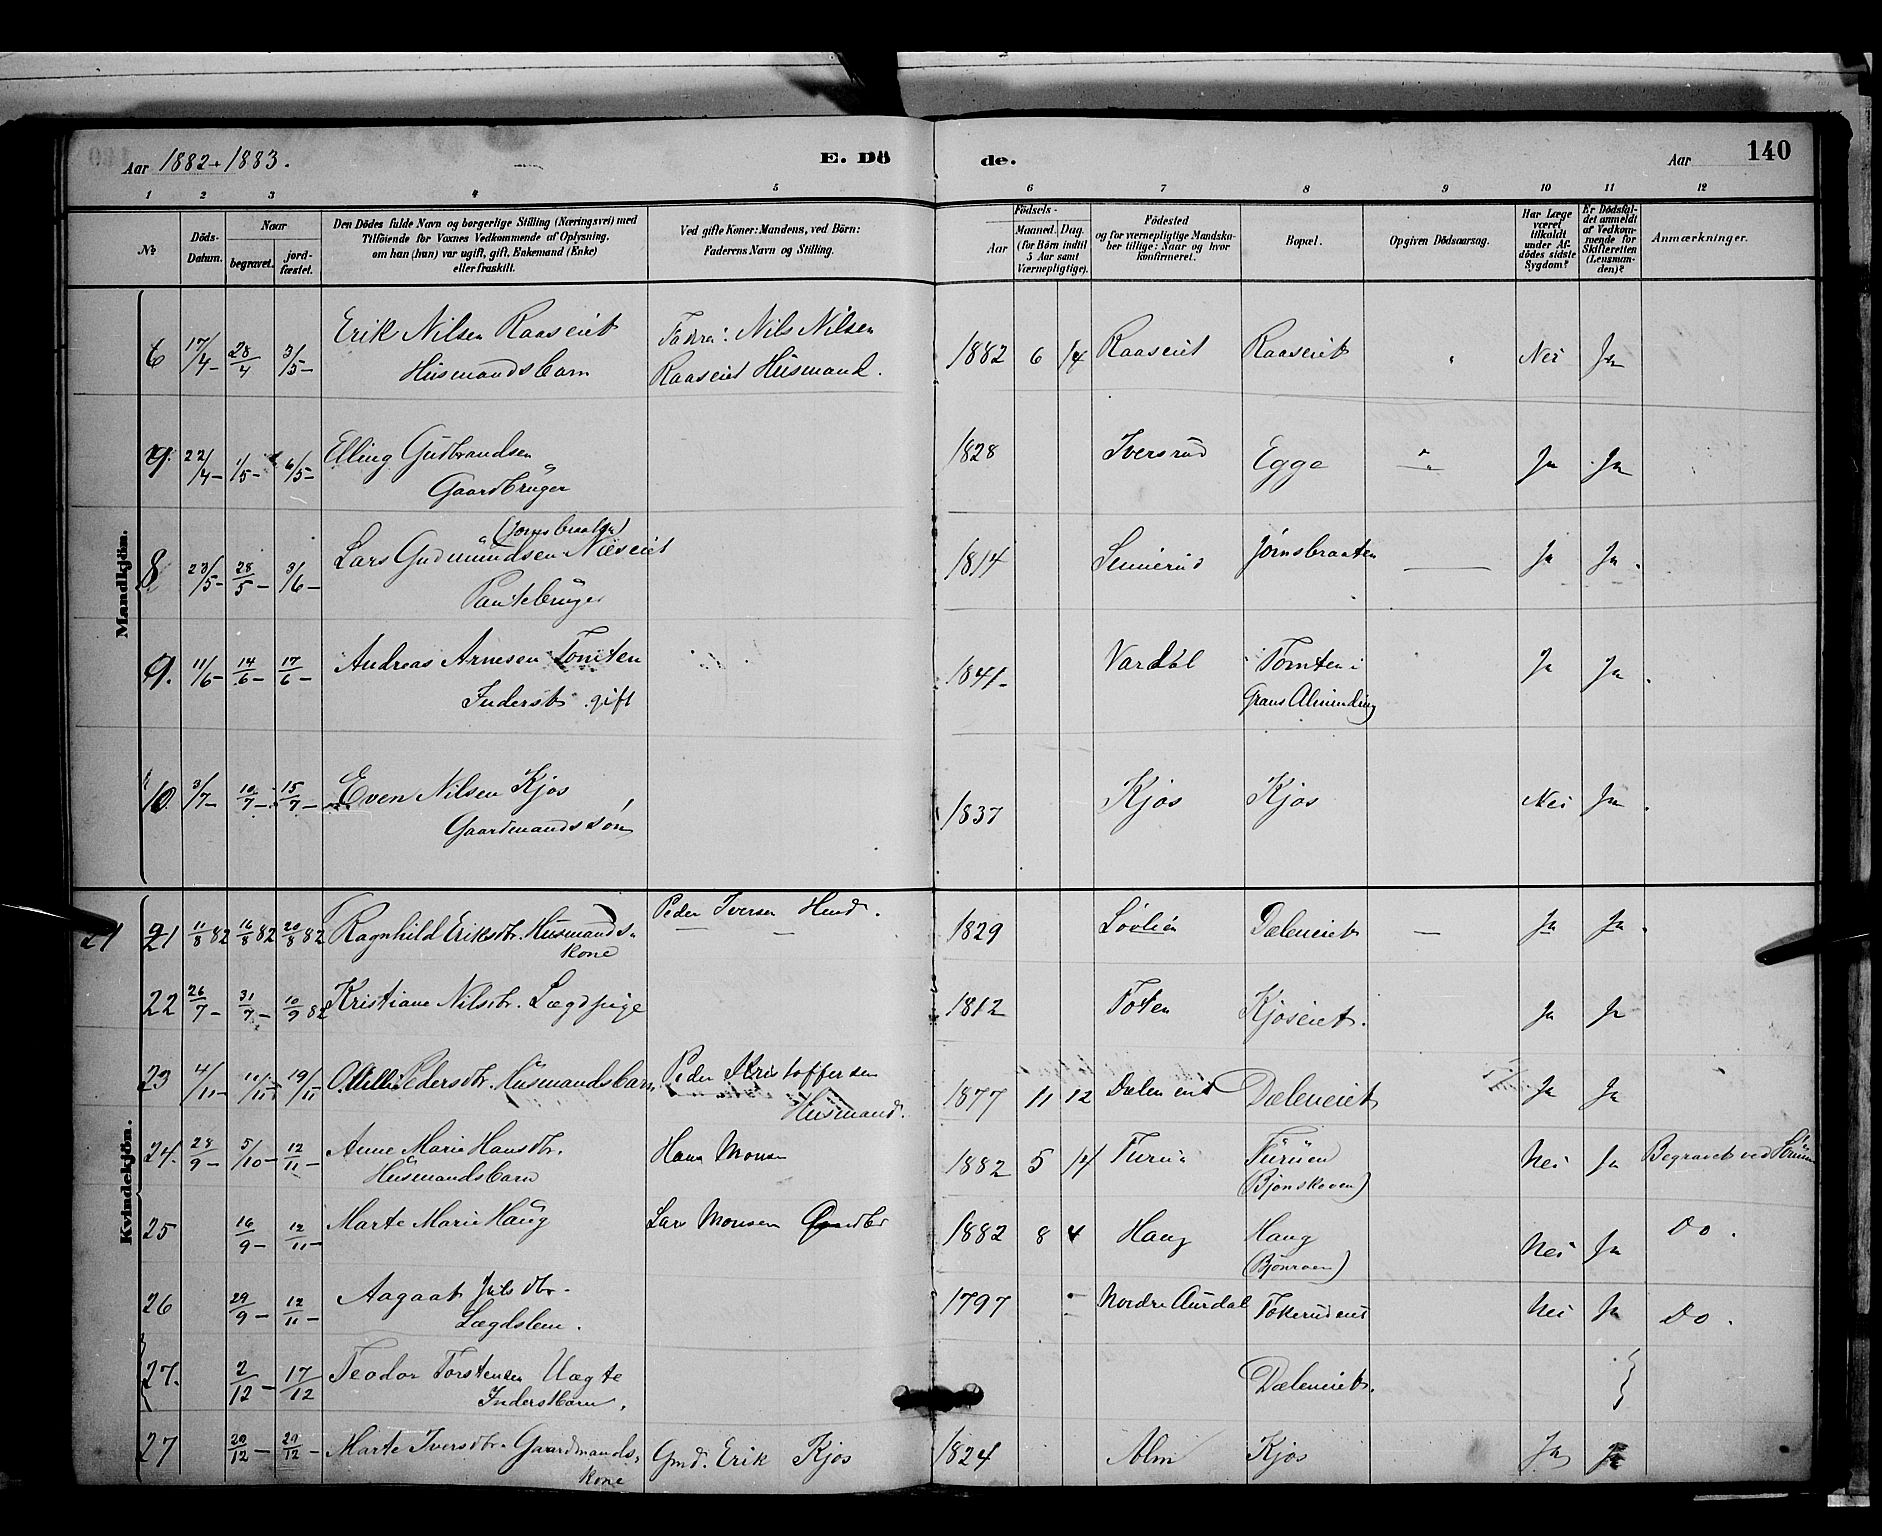 Aar 1882+1883. E. Dö de. Aar 140
1 2 3 4 5 6 7 8 9 10 11 12
No Döds-Datum. Naar begravet. jord-fæstet.
Den Dödes fulde Navn og borgerlige Stilling (Næringsvei) med
Tilföiende for Voxnes Vedkommende af Oplysning,
om han (hun) var ugift, gift, Enkemand (Enke)
eller fraskilt.
Ved gifte Koner: Mandens, ved Börn:
Faderens Navn og Stilling.
Födsels-
Aar Maaned. Dag.
(for Börn indtil
5 Aar samt
Værnepligtige).
Födested
og for værnepligtige Mandska-
ber tillige: Naar og hvor
konfirmeret.
Bopæl.
Opgiven Dödsaarsag.
Har Læge
været
tilkaldt
under Af-
dödes sidste
Sygdom?
Er Dödsfal-
det anmeldt
af Vedkom-
mende for
Skifteretten
(Lensman-
den)?
Anmærkninger.
Mandkjön.
6 17/4 28/4 3/5 Erik Nilsen Raaseiet Fadren: Nils Nilsen 1882 6 14 Raaseiet Raaseiet " Nei Ja
Husmandsbarn Raaseiet Husmand.
22/4 1/5 6/5 Elling Gudbrandsen 1828 Iversrud Egge Ja Ja
Gaardbruger
8 23/5 28/5 3/6 Lars Gudmundsen 1814 Jørnsbraaten Ja Ja
9. 11/6 14/6 17/6 Andreas Arnesen Tomten 1841 Vardal Tomten i Ja Ja
Inderst gift Grans Alminding
10 3/7 10/7 15/7 Even Nilsen Kjos 1837 Kjos Kjos Nei Ja
Gaardmandssøn
Kvindekjön.
21 21 11/8 82 16/8 82 20/8 82 Ragnhild Eriksdtr. Husmands- Peder Iversen Hmd. 1829 Løvlien Dæleneiet Ja Ja
kone
22 26/7 31/7 10/9 82 Kristiane Nilsdtr. Lægdpige 1812 Toten Kjoseiet. Ja Ja
23 4/11 11/11 19/11 Pedersdtr. Husmandsbarn Peder Kristoffersen 1877 11 12 Dæleneiet Dæleneiet Ja Ja
Husmand.
24. 28/9 5/10 12/11 Anne Marie Hansdtr. Hans Monsen 1882 5 14 Furua Furuen Nei Ja Begravet ved
Husmandsbarn
25 16/9 12/11 Marte Marie Haug Lars Monsen 1882 8 4 Haug Haug Nei Ja Do.
26 29/9 12/11 Aagaat 1797 Nordre Aurdal Nei Ja Do.
Lægdslem.
27. 2/12 17/12 Teodor Torstensen Uægte Dæleneiet.
Inderstbarn.
27 20/12 29/12 Marte Iversdtr. Gaardmands- Gmd. Erik Kjos 1824 Alm Kjos Ja Ja
kone